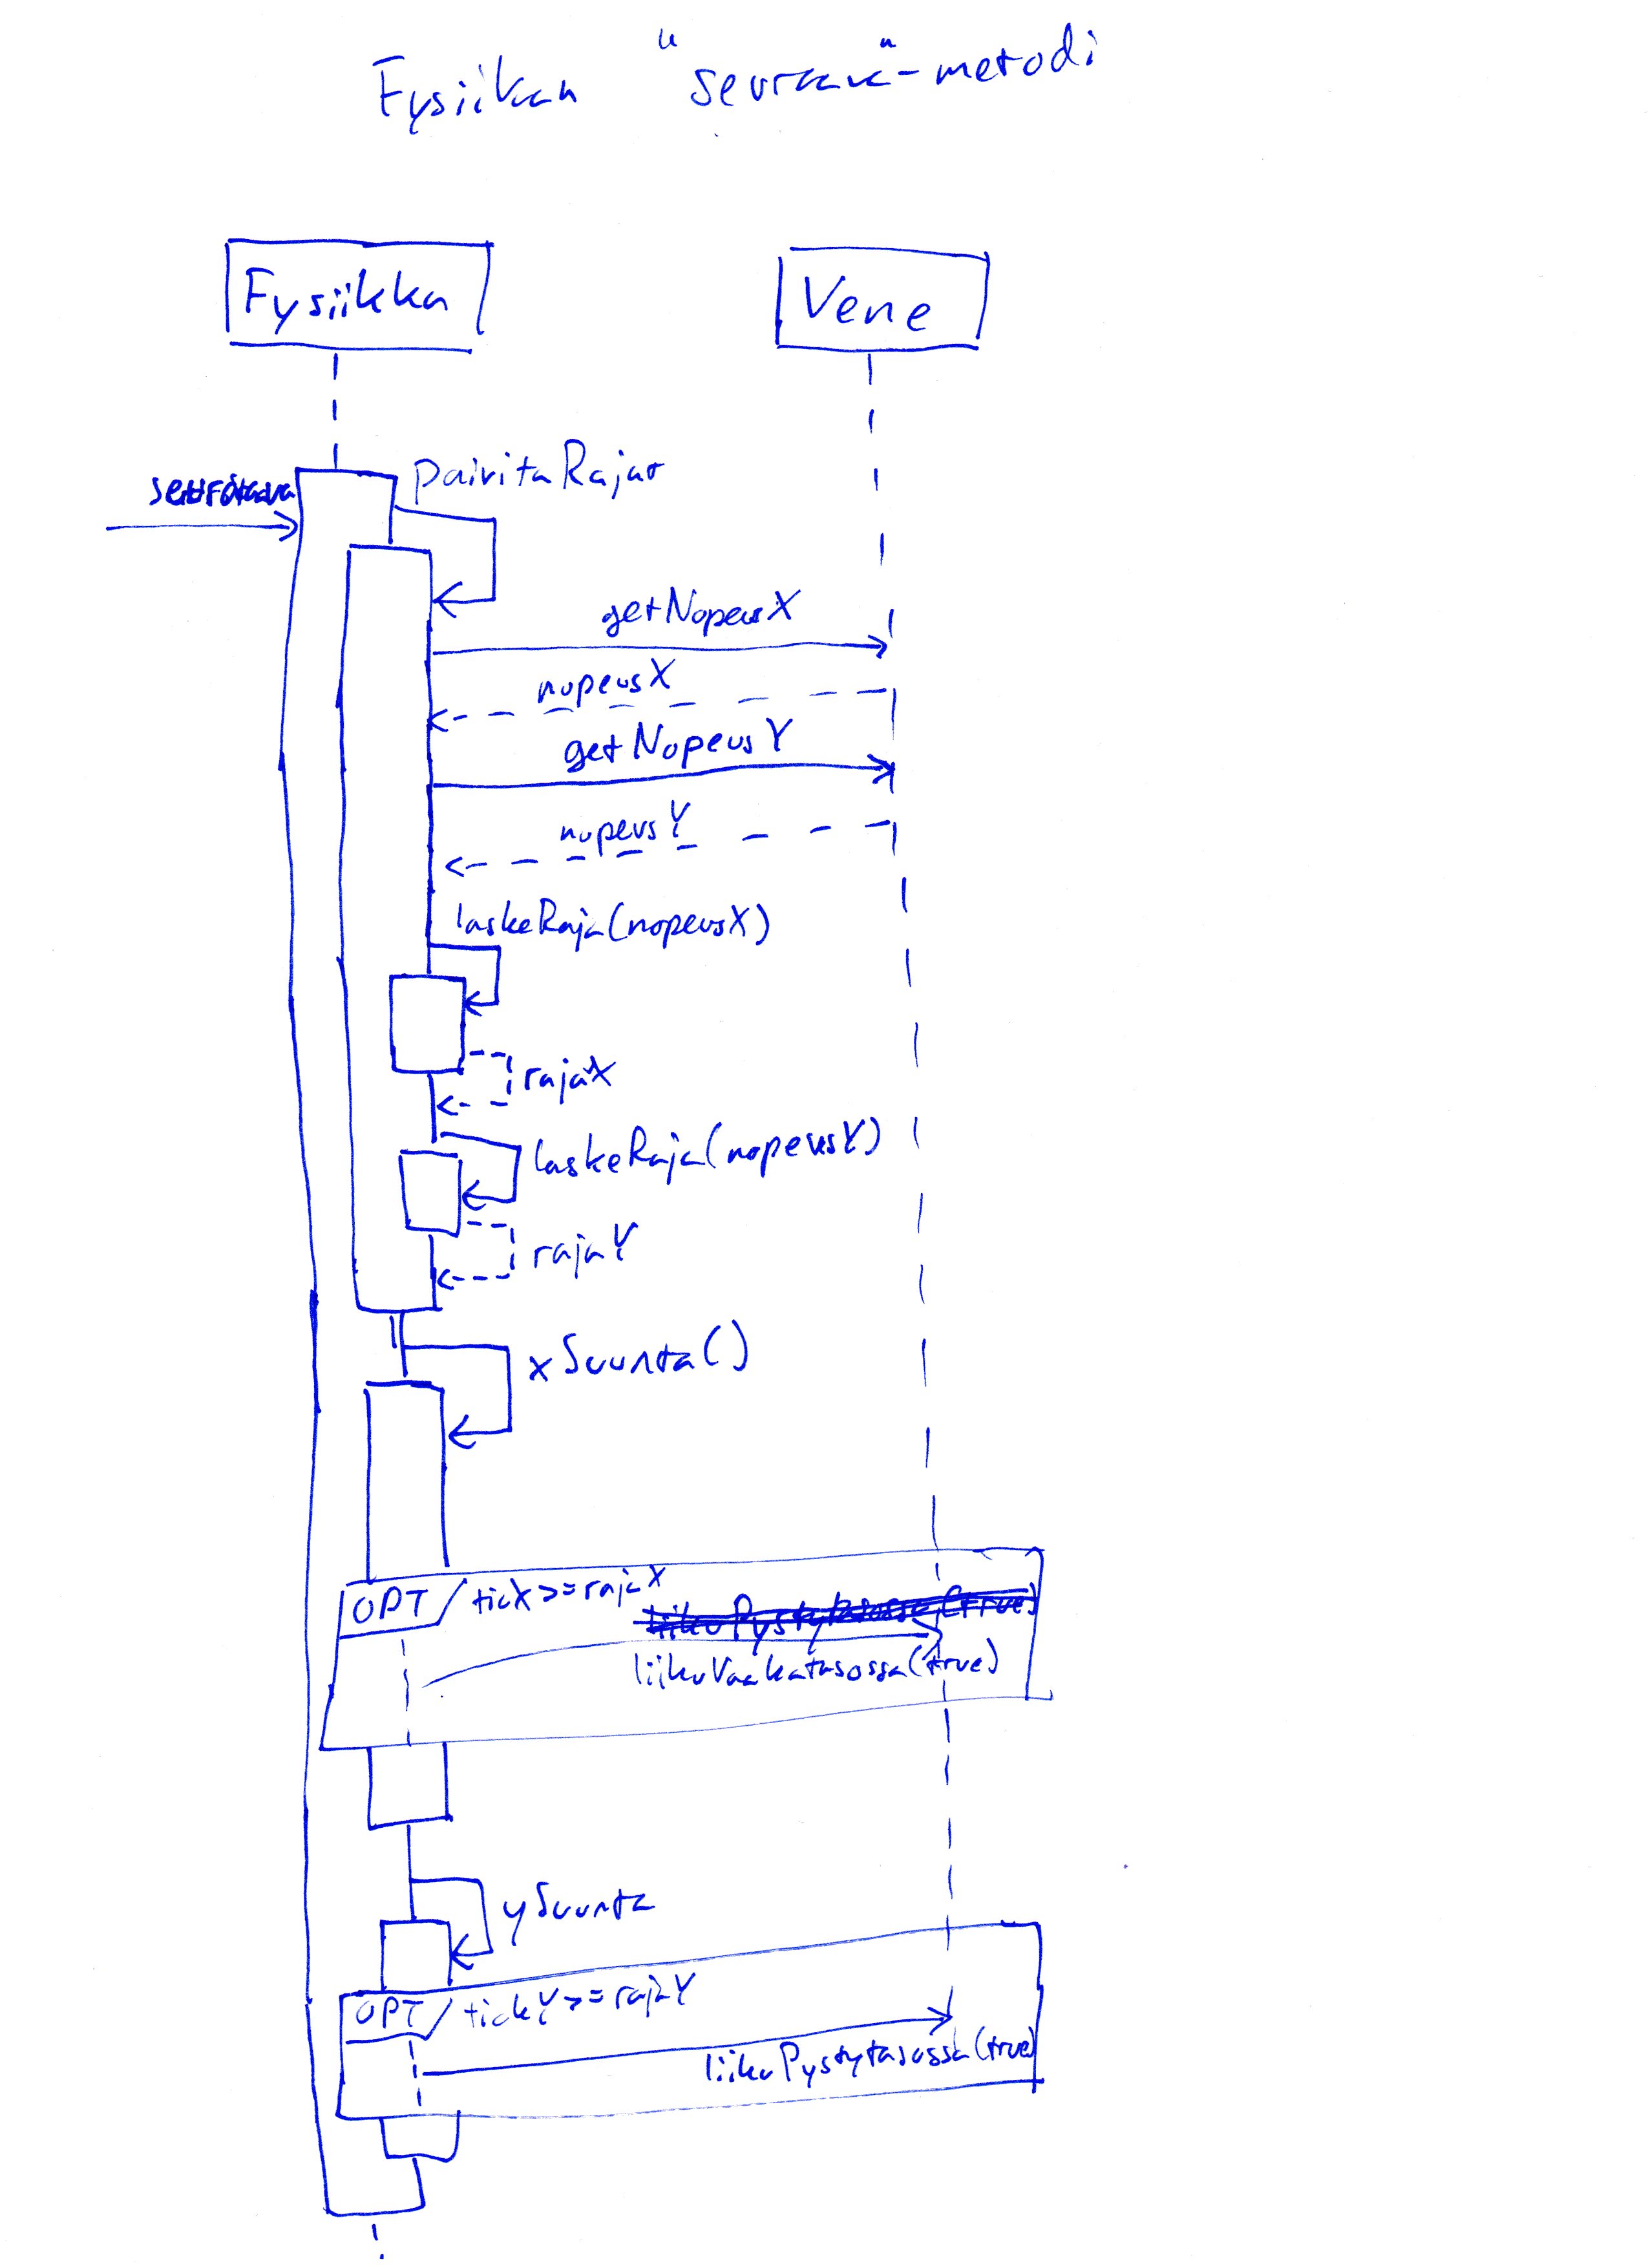 Fysiikan "seuraava"-metodi
Fysiikka
Vene
paivitaRajat
seuraava
getNopeusX
nopeusX
getNopeusY
nopeusY
laskeRaja(nopeusX)
rajaX
laskeRaja(nopeusY)
rajaY
xSuunta()
OPT / tickX>=rajaX
liikuPystytasossa(true)
liikuVaakatasossa(true)
ySuunta
OPT / tickY>=rajaY
liikuPystytasossa(true)